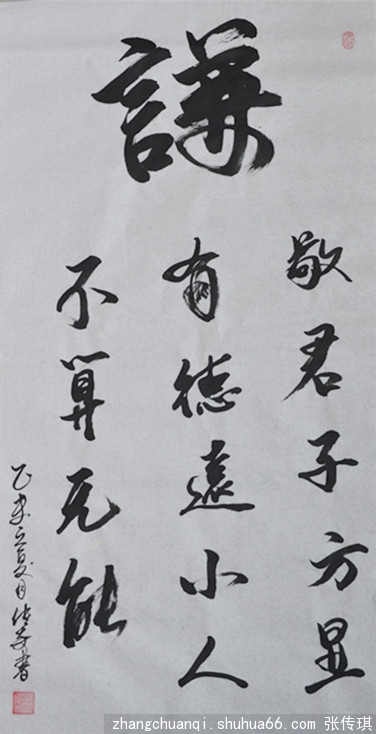 謙
敬君子方显
有德遠小人
不算无能
乙未夏月传琪书
zhangchuanqi.shuhua66.com 张传琪